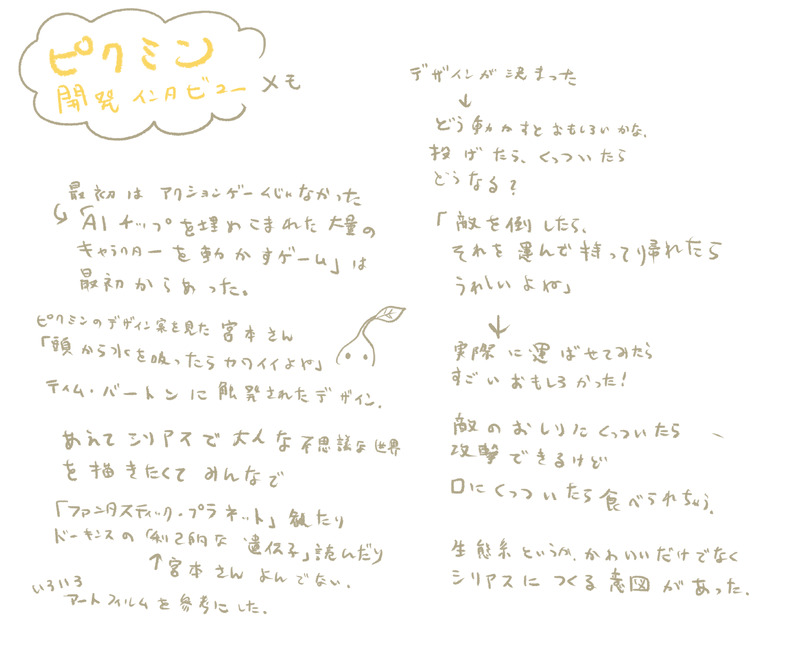 ピクミン
開発インタビュー メモ
最初は アクションゲームじゃなかった
「AIチップを埋めこまれた大量の
キャラクターを動かすゲーム」は
最初からあった。
ピクミンのデザイン案を見た 宮本さん
「頭から水を吸ったらカワイイよね」
ティム・バートンに触発されたデザイン.
あえてシリアスで大人な不思議な世界
を描きたくてみんなで
「ファンタスティック・プラネット」観たり
ドーキンスの「利己的な遺伝子」読んだり
↑宮本さん よんでない.
いろいろ
アートフィルムを参考にした.
デザインが決まった
↓
どう動かすとおもしろいかな.
投げたら、くっついたら
どうなる?
「敵を倒したら、
それを運んで持って帰れたら
うれしいよね」
↓
実際に運ばせてみたら
すごいおもしろかった!
敵のおしりにくっついたら
攻撃できるけど
口にくっついたら食べられちゃう.
生態系というか、かわいいだけでなく
シリアスにつくる意図があった.